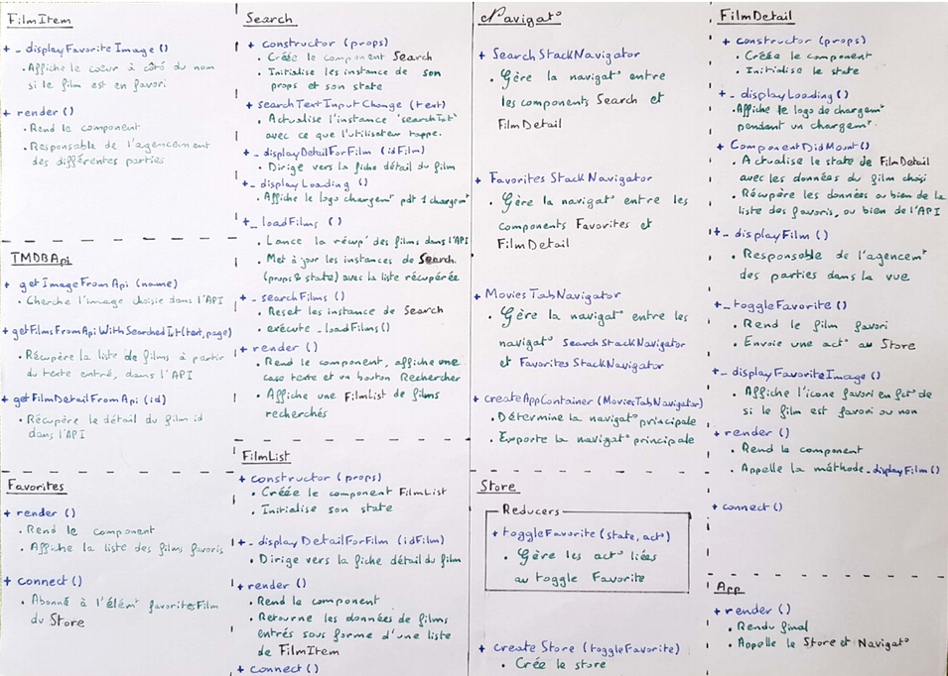 FilmItem
+ _ displayFavoriteImage ()
• Affiche le cœur à côté du nom
si le film est en favori
+ render ()
• Rend le component
• Responsable de l'agencement
des différentes parties
TMDBApi
+ getImageFromApi (name)
• Cherche l'image choisie dans l'API
+ getFilmsFromApiWithSearchedTxt (text, page)
• Récupère la liste de films à partir
du texte entré, dans l'API
+ getFilmDetailFromApi (id)
• Récupère le détail du film id
dans l'API
Favorites
+ render ()
• Rend le component
• Affiche la liste des films favoris
+ connect ()
• Abonné à l'élémt favoritesFilm
du Store
Search
+ constructor (props)
• Créée le component Search
• Initialise les instance de son
props et son state
+ searchTextInputChange (text)
• Actualise l'instance 'searchTxt'
avec ce que l'utilisateur tappe.
+ _ displayDetailForFilm (idFilm)
• Dirige vers la fiche détail du film
+ _ displayLoading ()
• Affiche le logo chargemt pdt 1 chargemt
+ _ loadFilms ()
• Lance la récup° des films dans l'API
• Met à jour les instances de Search
(props & state) avec la liste récupérée
+ _ searchFilms ()
• Reset les instance de Search
• exécute _loadFilms ()
+ render ()
• Rend le component, affiche une
case texte et un bouton Rechercher
• Affiche une FilmList de films
recherchés
FilmList
+ constructor (props)
• Créée le component FilmList
• Initialise son state
+ _ displayDetailForFilm (idFilm)
• Dirige vers la fiche détail du film
+ render ()
• Rend le component
• Retourne les données de films
entrés sous forme d'une liste
de FilmItem
+ connect ()
Navigat°
+ SearchStackNavigator
• Gère la navigat° entre
les components Search et
FilmDetail
+ Favorites StackNavigator
• Gère la navigat° entre les
components Favorites et
FilmDetail
+ MoviesTabNavigator
• Gère la navigat° entre les
navigat° SearchStackNavigator
et Favorites StackNavigator
+ createAppContainer (MoviesTabNavigator)
• Détermine la navigat° principale
• Exporte la navigat° principale
Store
Reducers
+ toggleFavorite (state, act°)
• Gère les act° liées
au toggle Favorite
+ create Store (toggleFavorite)
• Crée le store
FilmDetail
+ constructor (props)
• Créée le component
• Initialise le state
+ _ displayLoading ()
• Affiche le logo de chargemt
pendant un chargemt.
+ ComponentDidMount ()
• Actualise le state de FilmDetail
avec les données du film choisi
• Récupère les données ou bien de la
liste des favoris, ou bien de l'API
+ _ displayFilm ()
• Responsable de l'agencemt
des parties dans la vue
+ _ toggleFavorite ()
• Rend le film favori
• Envoie une act° au Store
+ _ displayFavoriteImage ()
• Affiche l'icone favori en fct° de
si le film est favori ou non
+ render ()
• Rend le component
• Appelle la méthode _displayFilm ()
+ connect ()
App
+ render ()
• Rendu final
• Appelle le Store et Navigat°